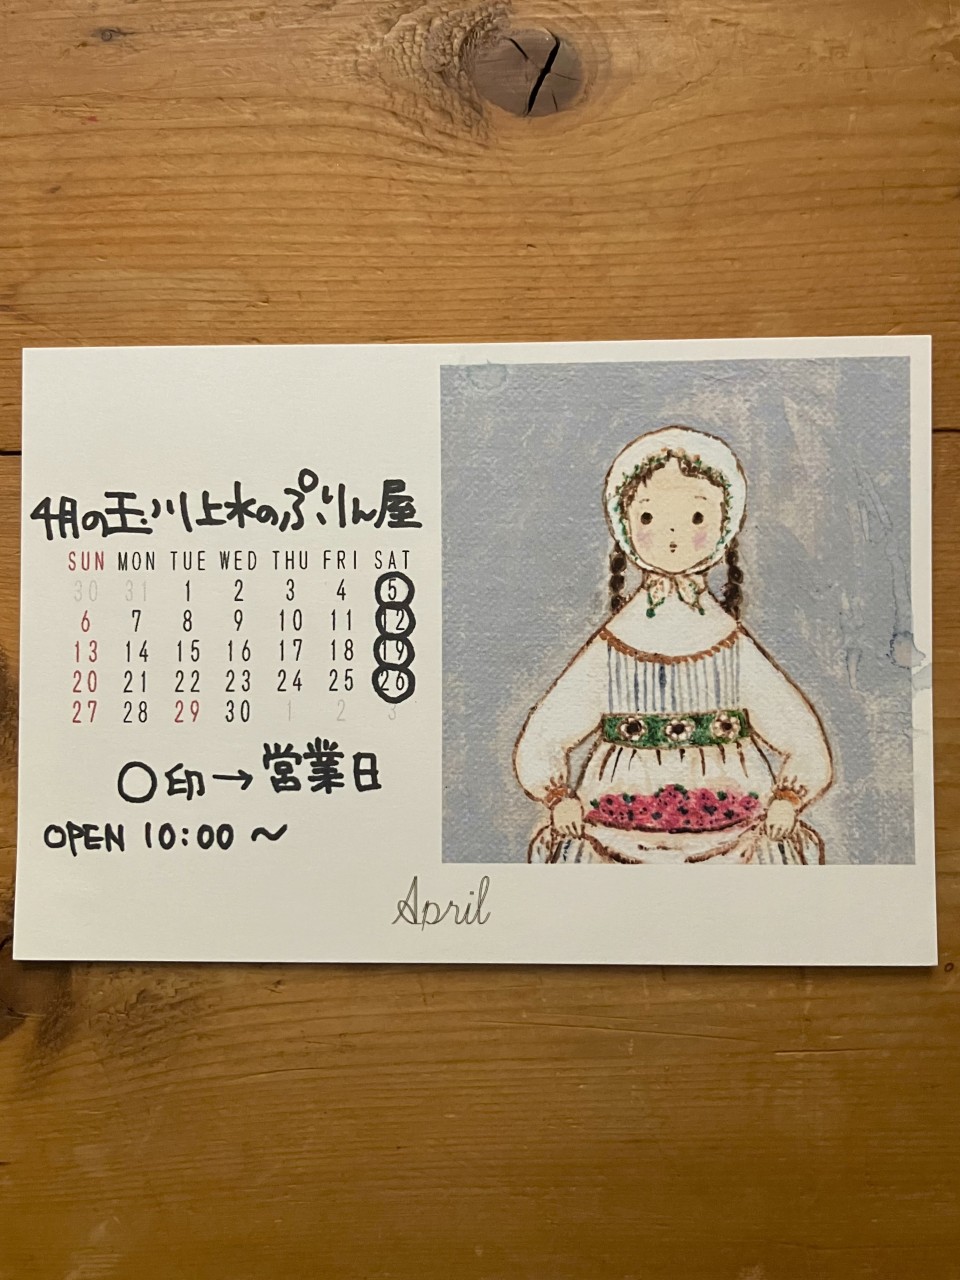 4月の玉川上水のぷりん屋
SUN MON TUE WED THU FRI SAT
30 31 1 2 3 4 5
6 7 8 9 10 11 12
13 14 15 16 17 18 19
20 21 22 23 24 25 26
27 28 29 30 1 2 3
○印→営業日
OPEN 10:00〜
April